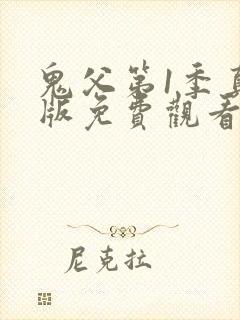 鬼父第1季真
版免費觀看
尼克拉